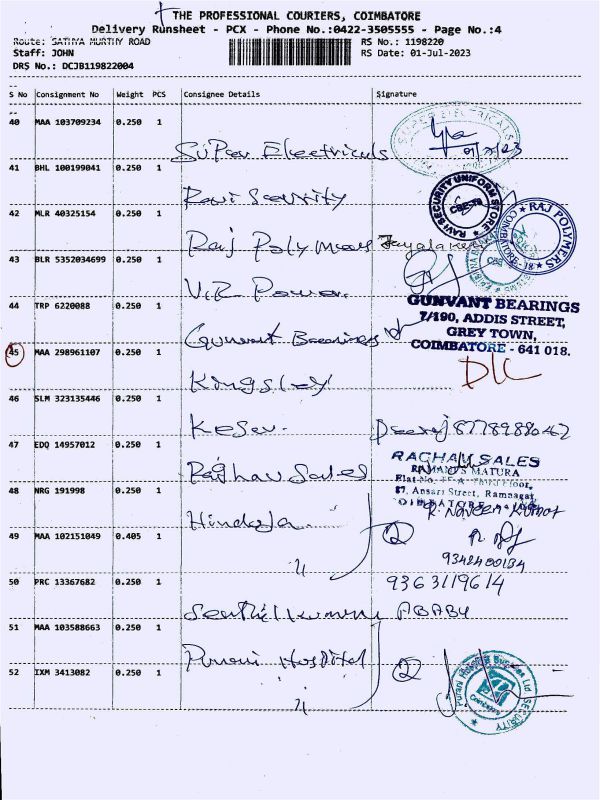 THE PROFESSIONAL COURIERS, COIMBATORE
Delivery Runsheet - PCX - Phone No.:0422-3505555 - Page No.:4
Route: SATHYA MURTHY ROAD RS No.: 1198220
Staff: JOHN RS Date: 01-Jul-2023
DRS No.: DCJB119822004
S No Consignment No Weight PCS Consignee Details Signature
40 MAA 103709234 0.250 1
Super Electricals
41 BHL 100199041 0.250 1
Ravi Security
RAVI SECURITY UNIFORM STORE
42 MLR 40325154 0.250 1
Raj Polymers
RAJ POLYMERS
COIMBATORE-18
43 BLR 5352034699 0.250 1
V.R Power.
44 TRP 6220088 0.250 1
Gunvant Bearings
GUNVANT BEARINGS
7/190, ADDIS STREET,
GREY TOWN,
COIMBATORE - 641 018.
45 MAA 298961107 0.250 1
Kingsley
D/L
46 SLM 323135446 0.250 1
Keser.
47 EDQ 14957012 0.250 1
Raghav Sales
RAGHAV SALES
87, Ansari Street, Ramnagar,
COIMBATORE
R. Naveen Kumar
48 NRG 191998 0.250 1
Hinduja
49 MAA 102151049 0.405 1
②
9342400134
50 PRC 13367682 0.250 1
9363119614
Senthilkumar
51 MAA 103588663 0.250 1
Purani Hospital
52 IXM 3413082 0.250 1
②
Purani Hospital Supplies Ltd
SECURITY
Coimbatore